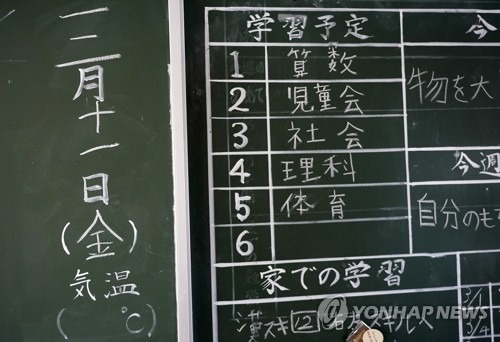 三月十一日
(金)
気温
( ℃)
学習予定
1 算数
2 児童会
3 社会
4 理科
5 体育
6
家での学習
漢スキ12
今
物を大
今週
自分のも
3/1
3/4
YONHAP NEWS